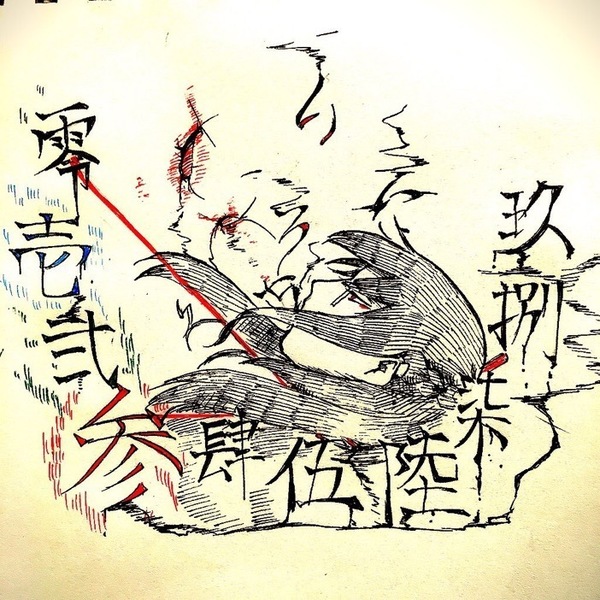 零
壱
弐
参
肆
伍
陸
柒
捌
玖